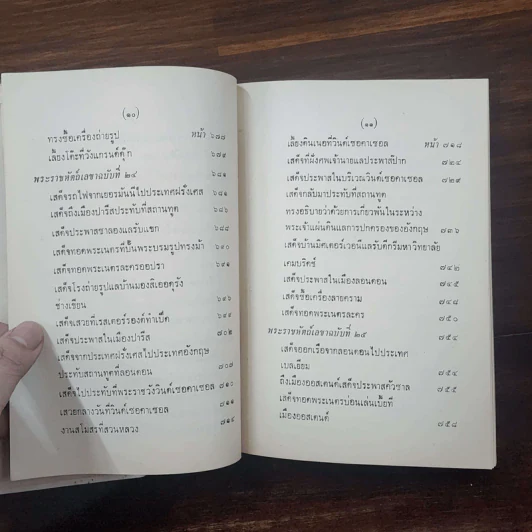 (๑๐)
ทรงซื้อเครื่องถ่ายรูป หน้า ๖๗๘
เลี้ยงโต๊ะที่วังแกรนด์ดุ๊ก ๖๗๙
พระราชหัตถ์เลขาฉบับที่ ๒๔ ๖๘๑
เสด็จรถไฟจากเยอรมันนีไปประเทศฝรั่งเศส ๖๘๑
เสด็จถึงเมืองปารีสประทับที่สถานทูต ๖๘๖
เสด็จประพาสซาลองแลรับแขก ๖๘๘
เสด็จทอดพระเนตรที่ปั้นพระบรมรูปทรงม้า ๖๙๐
เสด็จทอดพระเนตรละครออปรา ๖๙๑
เสด็จโรงถ่ายรูปแลบ้านมองสิเออดุรัง
ช่างเขียน ๖๙๖
เสด็จเสวยที่เรสเตอร์รองต์ทำเบ็ด ๖๙๙
เสด็จประพาสในเมืองปารีส ๗๐๒
เสด็จจากประเทศฝรั่งเศสไปประเทศอังกฤษ
ประทับสถานทูตที่ลอนดอน ๗๐๗
เสด็จไปประทับที่พระราชวังวินด์เซอคาเซอล ๗๑๐
เสวยกลางวันที่วินด์เซอคาเซอล ๗๑๑
งานสโมสรที่สวนหลวง ๗๑๔
(๑๑)
เลี้ยงดินเนอที่วินด์เซอคาเซอล หน้า ๗๑๘
เสด็จที่ฝังศพเจ้านายแลประพาสป๊าก ๗๒๔
เสด็จประพาสในบริเวณวินด์เซอคาเซอล ๗๒๙
เสด็จกลับมาประทับที่สถานทูต
ทรงอธิบายว่าด้วยการเกี่ยวพันในระหว่าง
พระเจ้าแผ่นดินแลการปกครองของอังกฤษ ๗๓๖
เสด็จบ้านมิศเตอร์เวอนีแลรับดีกรีมหาวิทยาลัย
เคมบริดช์ ๗๔๒
เสด็จประพาสในเมืองลอนดอน ๗๔๕
เสด็จซื้อเครื่องลายคราม ๗๔๘
เสด็จทอดพระเนตรละคร ๗๕๐
พระราชหัตถ์เลขาฉบับที่ ๒๕ ๗๕๔
เสด็จออกเรือจากลอนดอนไปประเทศ
เบลเยียม ๗๕๔
ถึงเมืองออสเตนด์เสด็จประพาสคัวซาล ๗๕๕
เสด็จทอดพระเนตรบ่อนเล่นเบี้ยที่
เมืองออสเตนด์ ๗๕๘